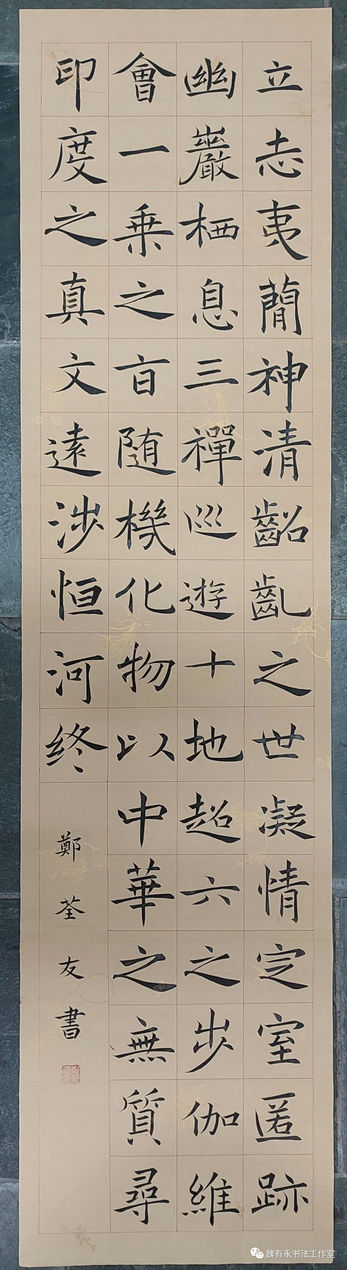 立志夷蕳神清齠齓之世凝情定室匿跡
幽巖栖息三禪巡遊十地超六之步伽維
會一乘之旨随機化物以中華之無質尋
印度之真文遠涉恒河終
鄭荃友書
魏有永书法工作室